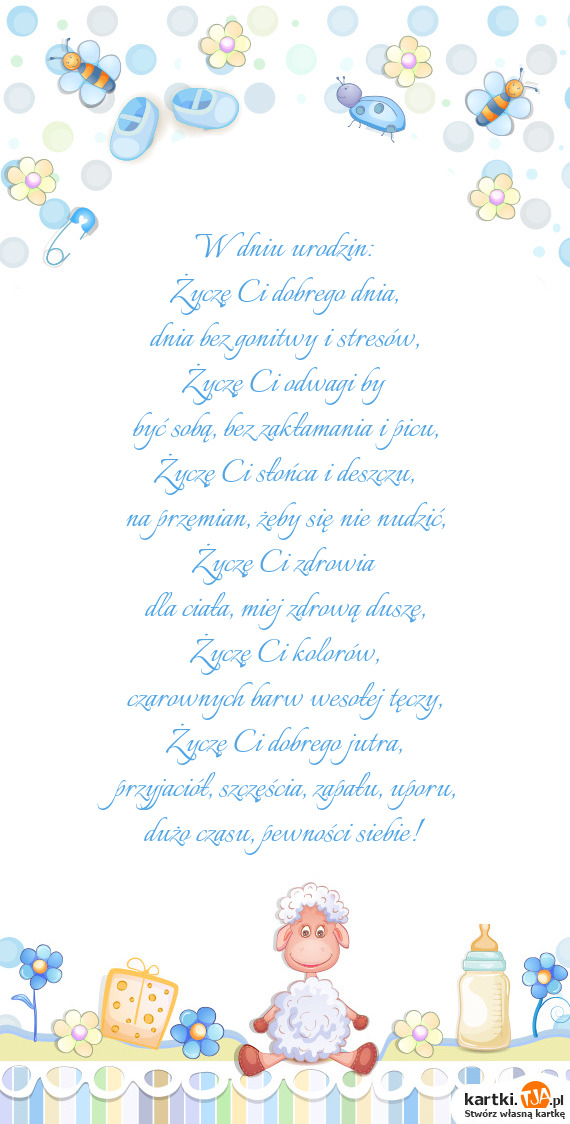 W dniu urodzin:
Życzę Ci dobrego dnia,
dnia bez gonitwy i stresów,
Życzę Ci odwagi by
być sobą, bez zakłamania i picu,
Życzę Ci słońca i deszczu,
na przemian, żeby się nie nudzić,
Życzę Ci zdrowia
dla ciała, miej zdrową duszę,
Życzę Ci kolorów,
czarownych barw wesołej tęczy,
Życzę Ci dobrego jutra,
przyjaciół, szczęścia, zapału, uporu,
dużo czasu, pewności siebie!
kartki.TJA.pl
Stwórz własną kartkę